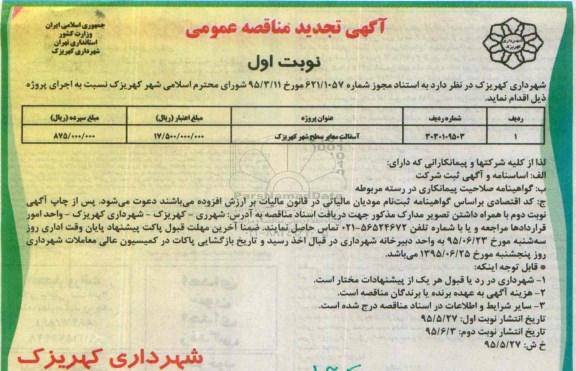 جمهوری اسلامی ایران
وزارت کشور
استانداری تهران
شهرداری کهریزک
آگهی تجدید مناقصه عمومی
نوبت اول
شهرداری کهریزک در نظر دارد به استناد مجوز شماره ۶۲۱/۱۰۵۷ مورخ ۹۵/۳/۱۱ شورای محترم اسلامی شهر کهریزک نسبت به اجرای پروژه
ذیل اقدام نماید.
ردیف شماره ردیف عنوان پروژه مبلغ اعتبار (ریال) مبلغ سپرده (ریال)
۱ ۳۰۳۰۱۰۹۵۰۳ آسفالت معابر سطح شهر کهریزک ۱۷/۵۰۰/۰۰۰/۰۰۰ ۸۷۵/۰۰۰/۰۰۰
لذا از کلیه شرکتها و پیمانکارانی که دارای:
الف: اساسنامه و آگهی ثبت شرکت
ب: گواهینامه صلاحیت پیمانکاری در رسته مربوطه
ج: کد اقتصادی براساس گواهینامه ثبت‌نام مودیان مالیاتی در قانون مالیات بر ارزش افزوده می‌باشند دعوت می‌شود. پس از چاپ آگهی
نوبت دوم با همراه داشتن تصویر مدارک مذکور جهت دریافت اسناد مناقصه به آدرس: شهرری - کهریزک - شهرداری کهریزک - واحد امور
قراردادها مراجعه و یا با شماره تلفن ۵۶۵۲۴۶۷۲-۰۲۱ تماس حاصل نمایند. ضمنا آخرین مهلت قبول پاکت پیشنهاد پایان وقت اداری روز
سه‌شنبه مورخ ۹۵/۰۶/۲۳ به واحد دبیرخانه شهرداری در قبال اخذ رسید و تاریخ بازگشایی پاکات در کمیسیون عالی معاملات شهرداری
روز پنجشنبه مورخ ۱۳۹۵/۰۶/۲۵ می‌باشد.
* قابل توجه اینکه:
۱- شهرداری در رد یا قبول هر یک از پیشنهادات مختار است.
۲- هزینه آگهی به عهده برنده یا برندگان مناقصه است.
۳- سایر شرایط و اطلاعات در اسناد مناقصه درج شده است.
تاریخ انتشار نوبت اول: ۹۵/۵/۲۷
تاریخ انتشار نوبت دوم: ۹۵/۶/۳
خ ش: ۹۵/۵/۲۷
شهرداری کهریزک